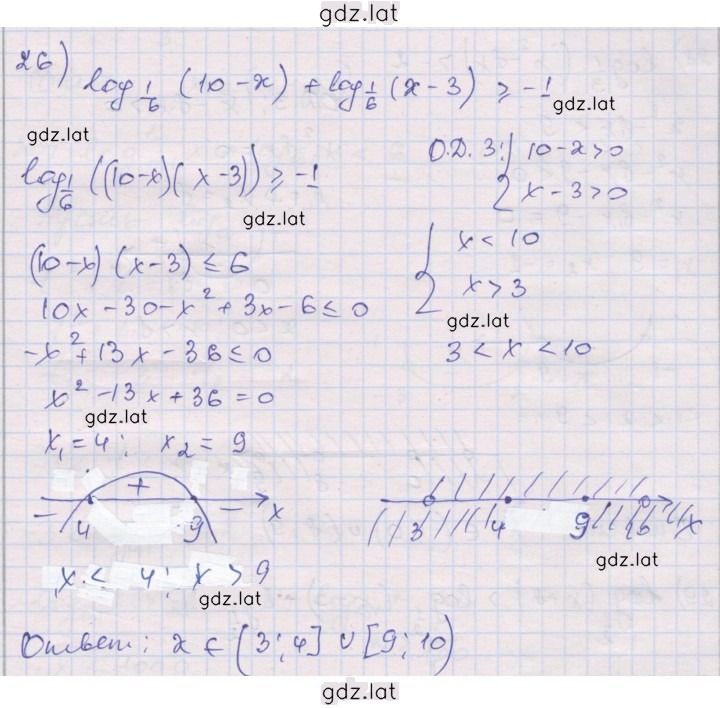 gdz.lat
26) log_{1/6} (10 - x) + log_{1/6} (x - 3) ≥ -1
gdz.lat
gdz.lat
log_{1/6} ((10-x)(x-3)) ≥ -1
О.Д.З: { 10-x>0
x-3>0
gdz.lat
(10-x)(x-3) ≤ 6
{ x < 10
x > 3
10x - 30 - x² + 3x - 6 ≤ 0
gdz.lat
-x² + 13x - 36 ≤ 0
3 < x < 10
x² - 13x + 36 = 0
gdz.lat
x₁ = 4; x₂ = 9
- + - x
4 9
3 4 9 x
gdz.lat
x < 4; x > 9
gdz.lat
Ответ: x ∈ (3; 4] ∪ [9; 10)
gdz.lat